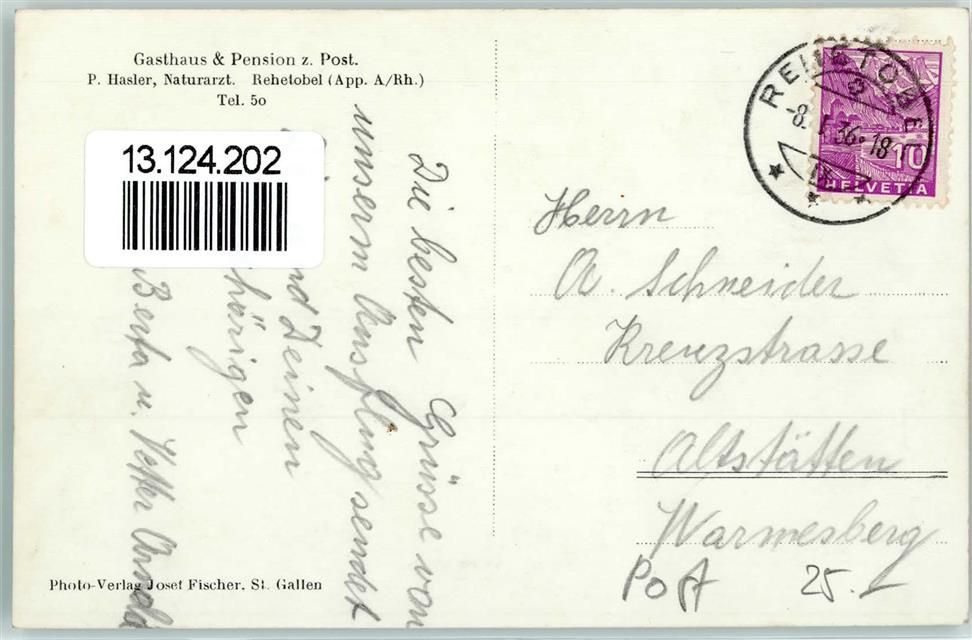 Gasthaus & Pension z. Post.
P. Hasler, Naturarzt. Rehetobel (App. A/Rh.)
Tel. 50
13.124.202
Die besten Grüsse von
unserm Ausflug sendt
nd Deinen
hörigen
Berta u. Vetter Arnold
Photo-Verlag Josef Fischer, St. Gallen
REHETOBEL
-8. 36-18
10
HELVETIA
Herrn
A. Schneider
Kreuzstrasse
Altstätten
Warmesberg
Post 25.-